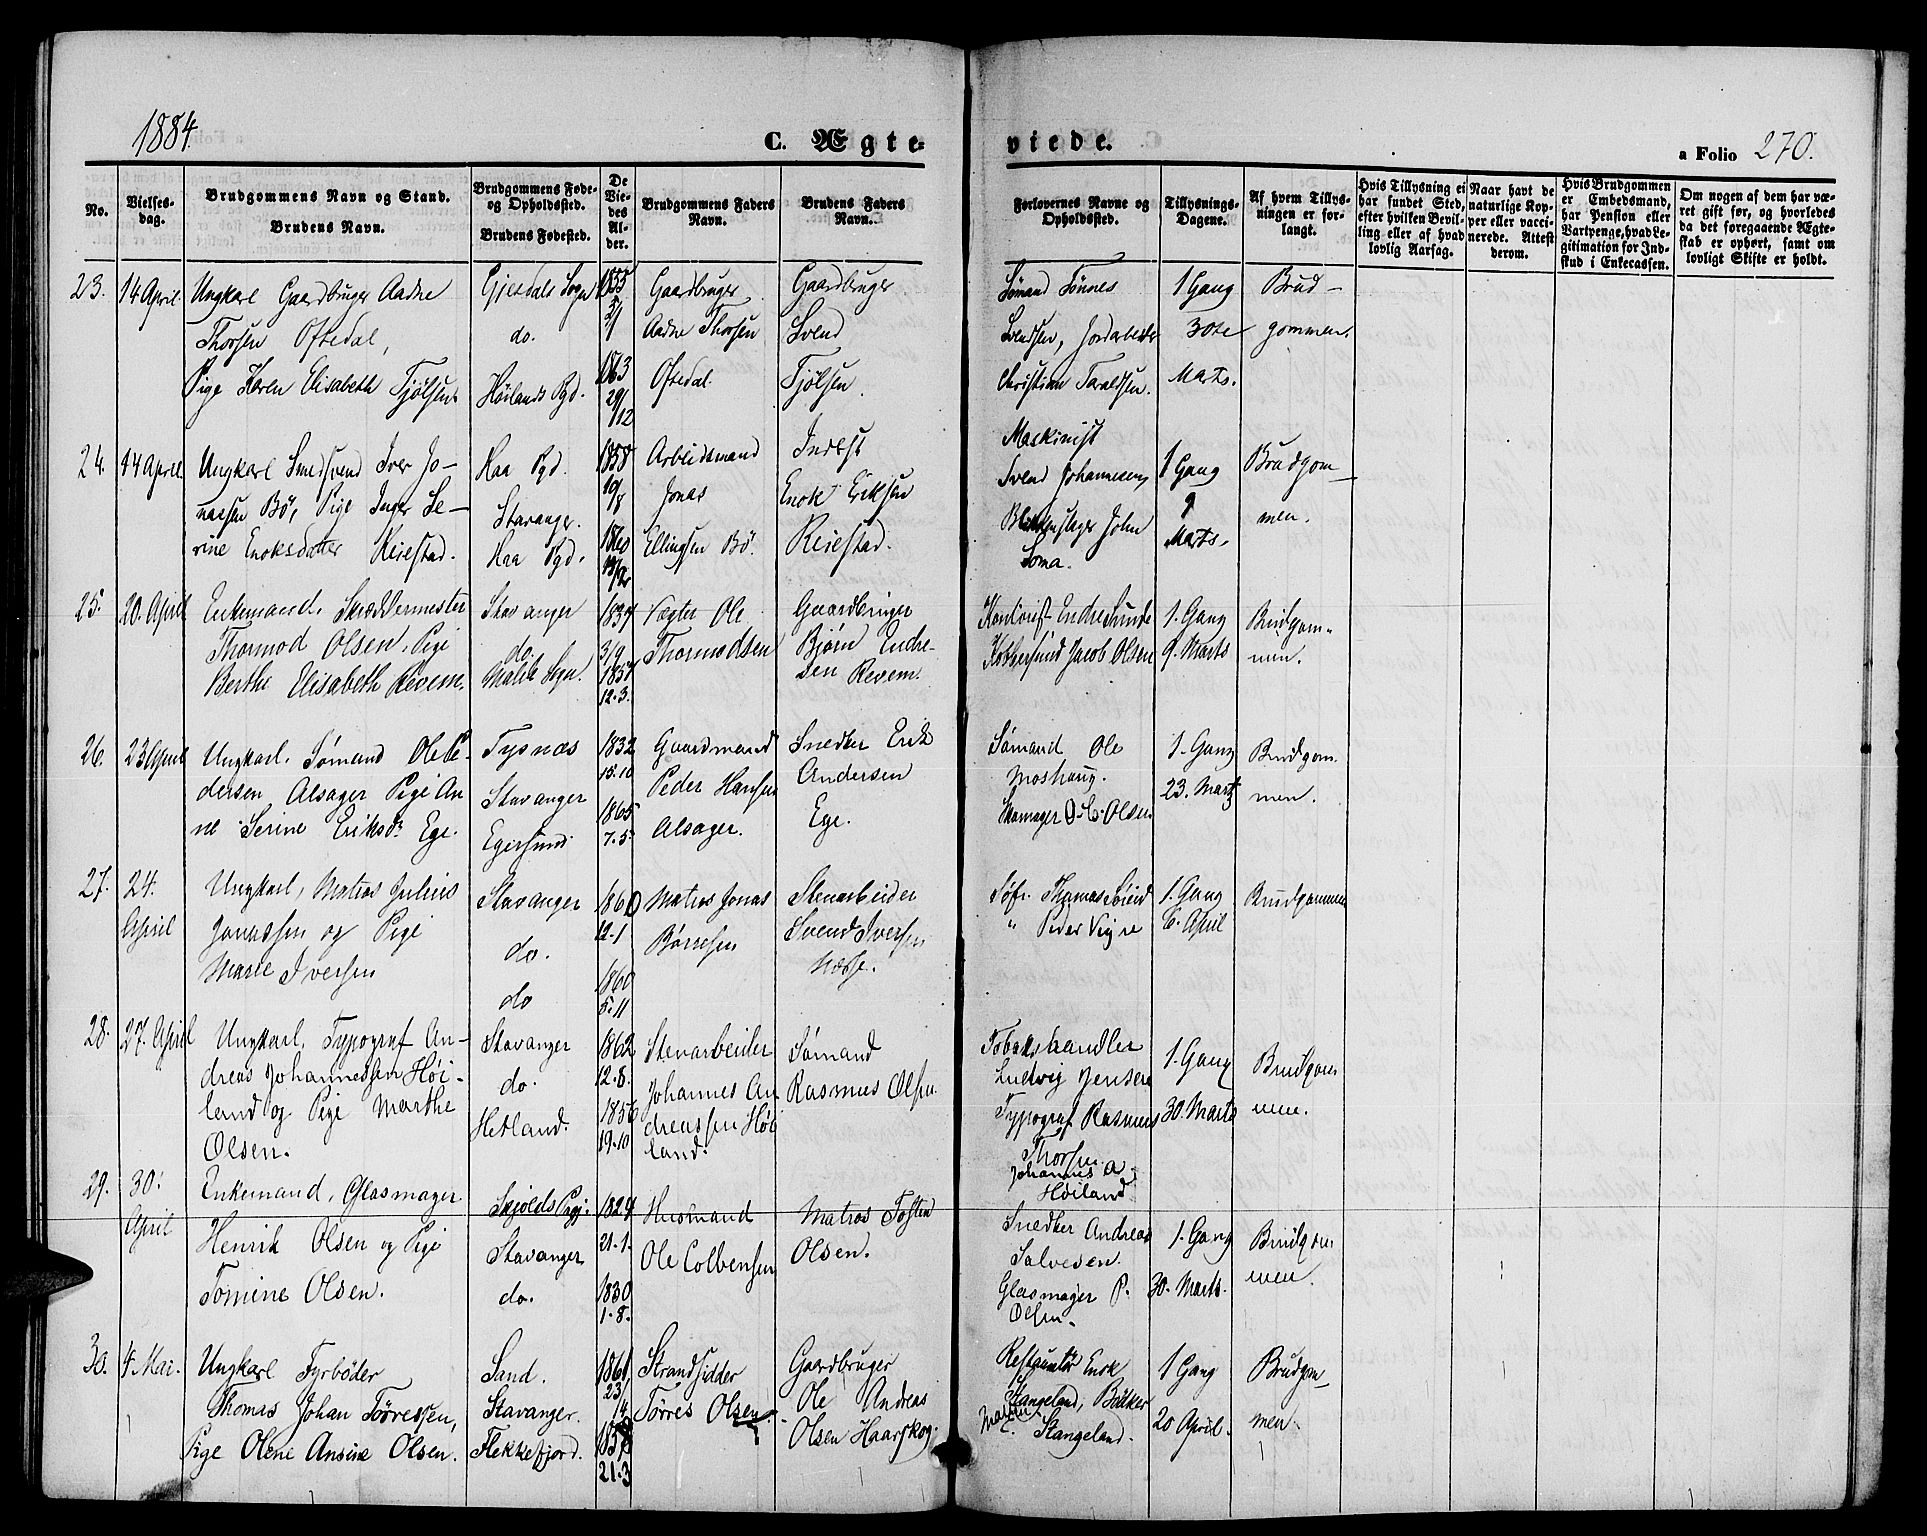 1884.
C. Ægte-
viede.
a Folio 270.
No.
Vielses-
dag.
Brudgommens Navn og Stand.
Brudens Navn.
Brudgommens Føde-
og Opholdssted.
Brudens Fødested.
De
Vie-
des
Al-
der.
Brudgommens Faders
Navn.
Brudens Faders
Navn.
Forlovernes Navne og
Opholdssted.
Tillysnings-
Dagene.
Af hvem Tillys-
ningen er for-
langt.
Hvis Tillysning ei
har fundet Sted,
efter hvilken Bevil-
ling eller af hvad
lovlig Aarsag.
Naar havt de
naturlige Kop-
per eller vacci-
nerede. Attest
derom.
Hvis Brudgommen
er Embedsmand,
har Pension eller
Vartpenge, hvad Le-
gitimation for Ind-
skud i Enkecassen.
Om nogen af dem har væ-
ret gift før, og hvorledes
da det foregaaende Ægte-
skab er ophørt, samt om
lovligt Skifte er holdt.
23.
14 April.
Ungkarl Gaardbruger Aadne
Thorsen Oftedal,
Pige Karen Elisabeth Tjølsen.
Gjesdals Sogn
do.
Høilands Pgd.
1855
2/1
1863
29/12
Gaardbruger
Aadne Thorsen
Oftedal.
Gaardbruger
Svend
Tjølsen.
Sømand Tønnes
Svendsen, Jordarbeider
Christian Taraldsen.
1 Gang
30te
Marts.
Brud-
gommen.
24.
14 April.
Ungkarl Smedsvend Iver Jo-
nassen Bø, Pige Inger Se-
rine Enoksdatter Reiestad.
Haa Pgd.
Stavanger.
Haa Pgd.
1858
10/8
1860
Arbeidsmand
Jonas
Ellingsen Bø.
Inderst
Enok Eriksen
Reiestad.
Maskinist
Svend Johannesen,
Blikkenslager John
Soma.
1 Gang
9
Marts.
Brudgom-
men.
25.
20. April
Enkemand. Skræddermester
Thormod Olsen, Pige
Berthe Elisabeth Revem.
Stavanger
do.
Sogn.
1837
3/9
1857
12.3.
Vægter Ole
Thormodsen
Gaardbruger
Bjørn Endre-
sen Revem.
Endre Sunde
Jacob Olsen
1. Gang
9. Marts
Brudgom-
men.
26.
23 April
Ungkarl. Sømand Ole Pe-
dersen Alsager Pige An
ne Serine Eriksd. Ege.
Tysnæs
Stavanger
Egersund
1832
15.10
1865
7.5.
Gaardmand
Peder Hansen
Alsager.
Snedker Erik
Andersen
Ege.
Sømand Ole
Moshaug.
Skomager O. C. Olsen
1. Gang
23. Marts
Brudgom
men.
27.
24.
April
Ungkarl, Matros Julius
Jonassen og Pige
Marie Iversen
Stavanger
do.
do
1860
12.1
1860
5.11
Matros Jonas
Børresen
Stenarbeider
Svend Iversen
Næsse.
Søfr. Thomas
" Peder Vigre
1. Gang
6. April
Brudgommen
28.
27. April
Ungkarl, Typograf An-
dreas Johannessen Høi-
land og Pige Marthe
Olsen.
Stavanger
do.
Hetland.
1862
12.8.
1856
19.10
Stenarbeider
Johannes An
dreassen Høi
land.
Sømand
Rasmus Olsen.
Tobakshandler
Ludvig Jensen
Typograf Rasmus
Thorsen.
Johannes A
Høiland
1. Gang
30. Marts
Brudgom
men.
29.
30.
April
Enkemand, Glasmager
Henrik Olsen og Pige
Tomine Olsen.
Skjolds Pgj.
Stavanger
do.
1824
21.1.
1830
1.8.
Husmand
Ole Colbensen
Matros Tosten
Olsen.
Snedker Andreas
Salvesen.
Glasmager P.
Olsen.
1. Gang
30. Marts.
Brudgom
men.
30.
4 Mai.
Ungkarl Fyrbøder
Thomas Johan Tørressen,
Pige Olene Ansine Olsen.
Sand.
Stavanger.
Flekkefjord.
1861
23/4
1858
21.3
Strandsidder
Tørres Olsen.
Gaardbruger
Ole Andreas
Olsen Haarskog.
Restauratør Enok
Stangeland, Bødker
Martin Stangeland.
1 Gang
20 April.
Brudgom-
men.